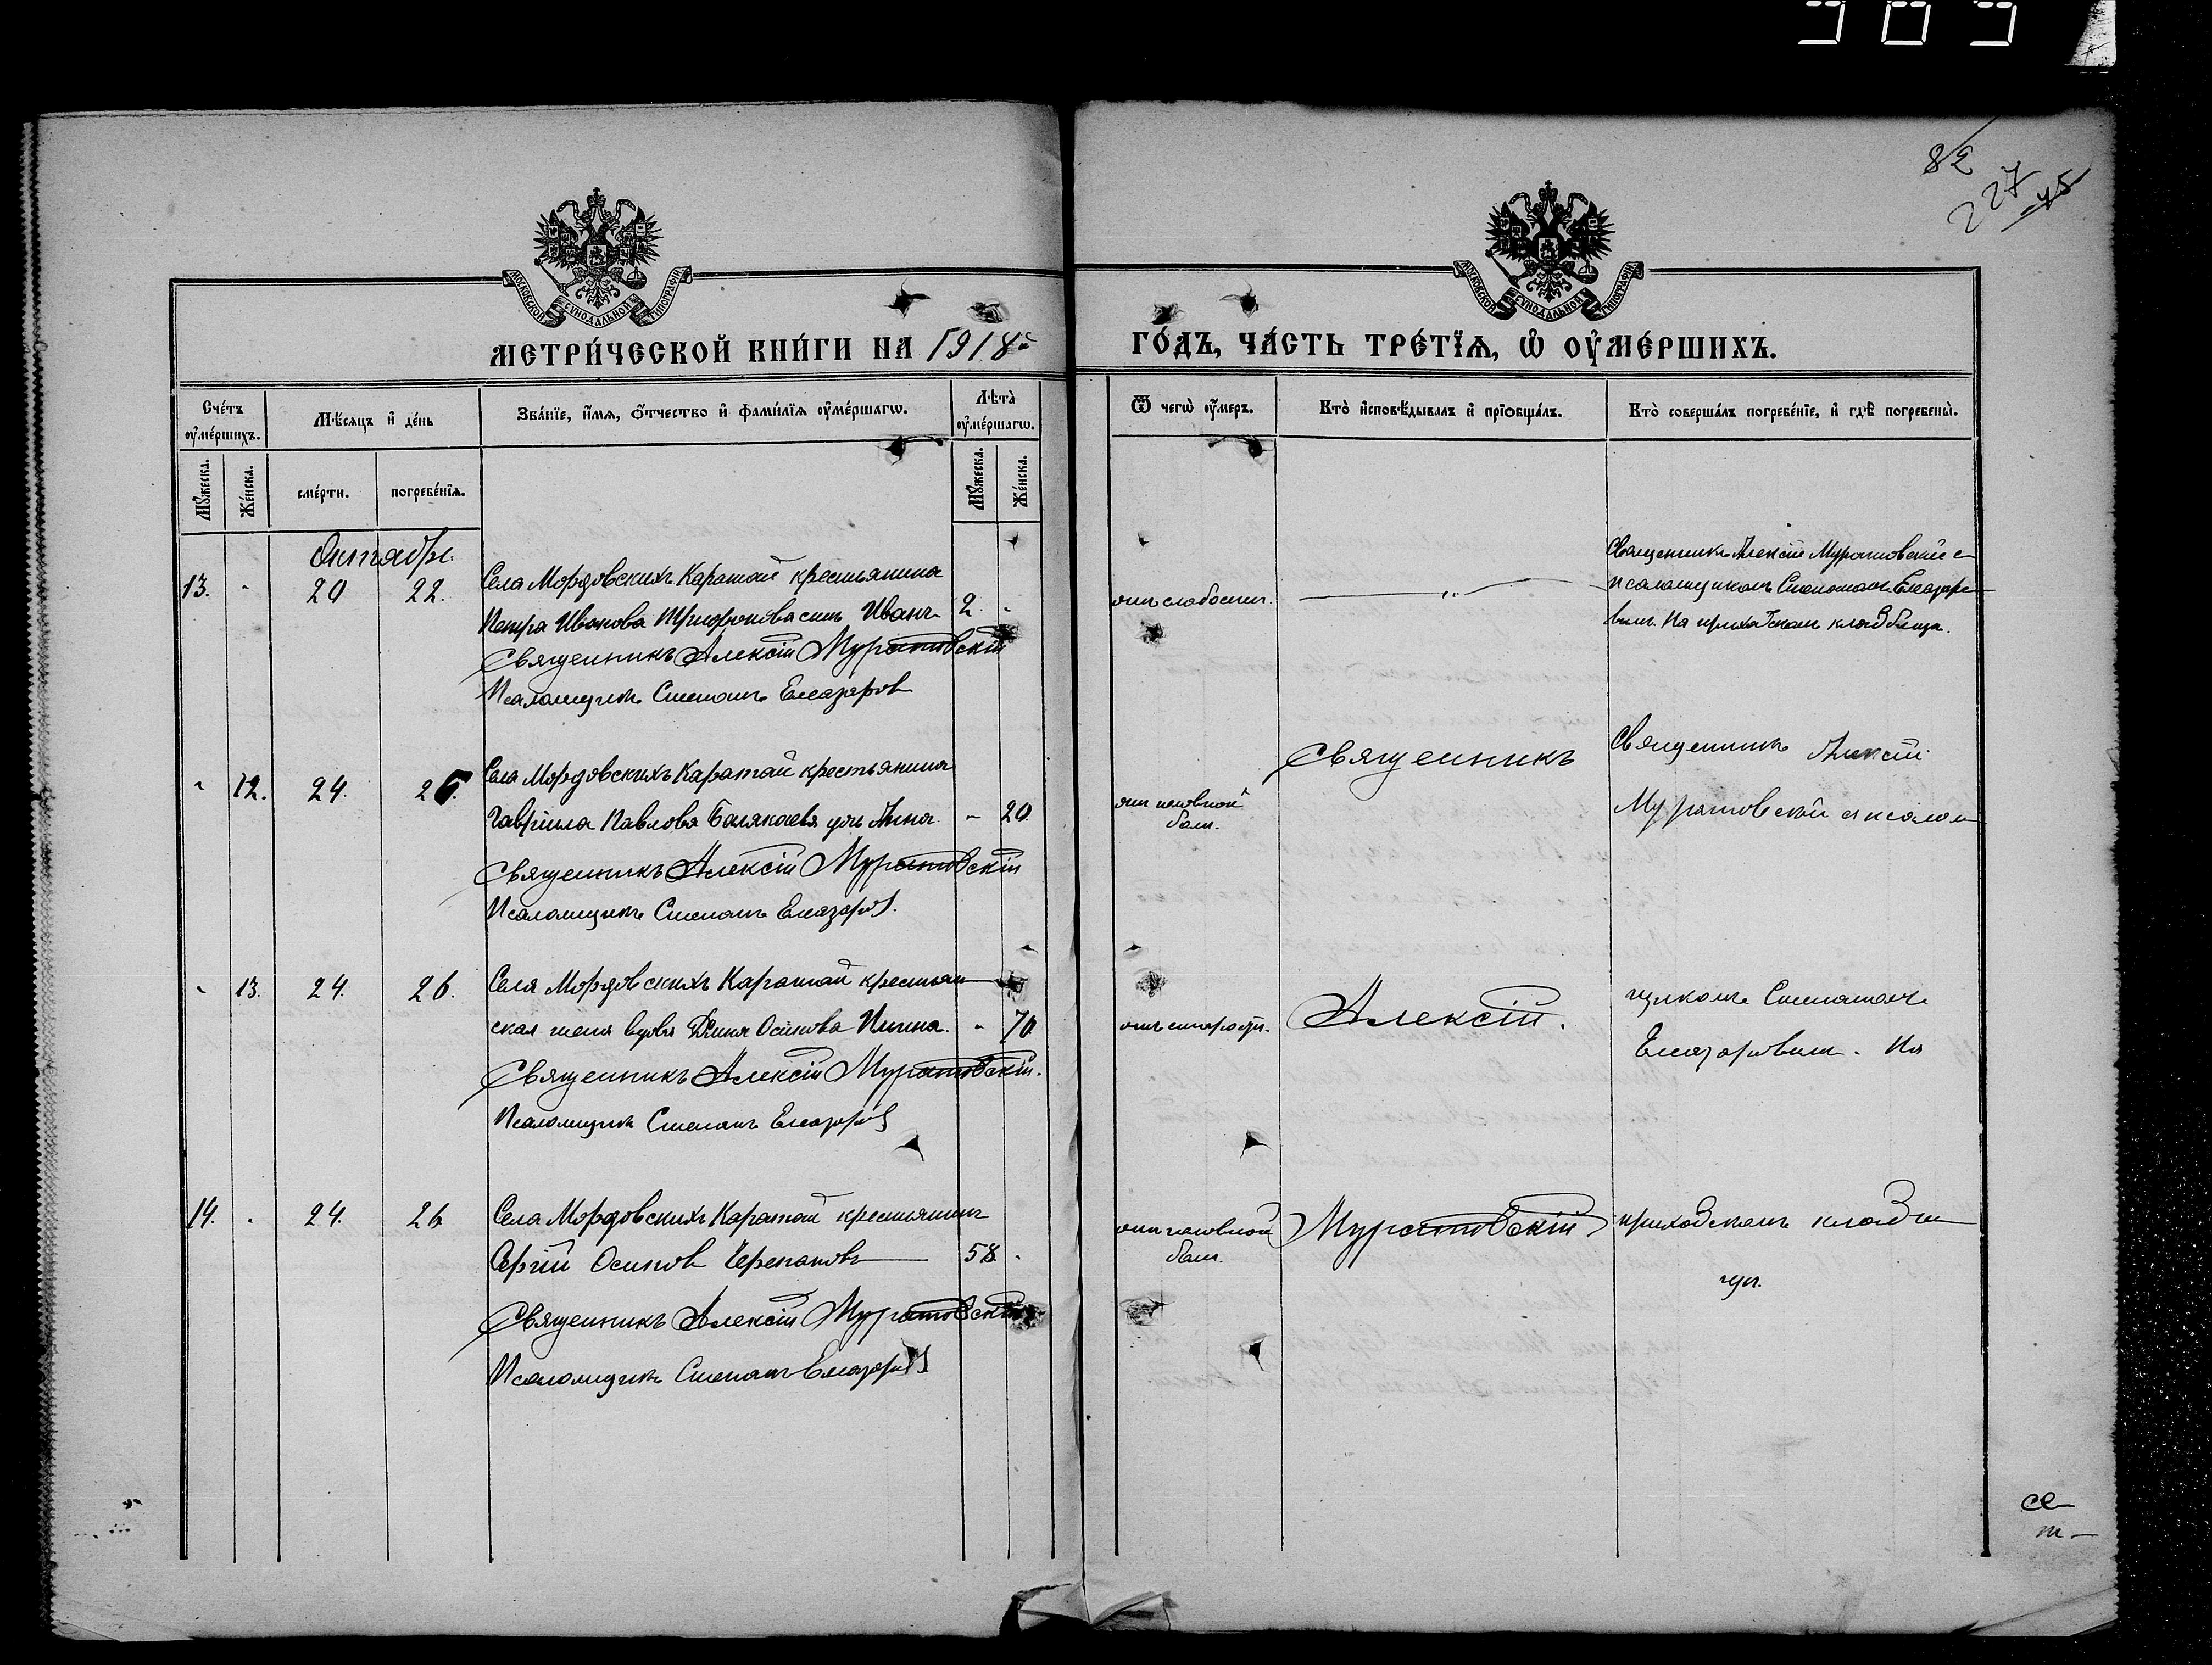 82
227
45
МОСКОВСКОЙ СѴНОДАЛЬНОЙ ТИПОГРАФІИ
МОСКОВСКОЙ СѴНОДАЛЬНОЙ ТИПОГРАФІИ
МЕТРИ́ЧЕСКОЙ КНИ́ГИ НА 1918й ГО́ДЪ, ЧА́СТЬ ТРЕ́ТЇѦ, Ѡ҆ ОУ҆МЕ́РШИХЪ.
Сче́тъ оу҆ме́ршихъ.
Мѣ́сяцъ и҆ де́нь
Зва́нїе, и҆́мѧ, ѻ҆́тчество и҆ фами́лїѧ оу҆ме́ршагѡ.
Лѣ́та̀ оу҆ме́ршагѡ.
Ѿ чегѡ̀ оу҆́меръ.
Кто̀ и҆сповѣ́дывалъ и҆ прїѻбща́лъ.
Кто̀ соверша́лъ погребе́нїе, и҆ гдѣ̀ погребены̀.
Мꙋ́жеска.
Же́нска.
сме́рти.
погребе́нїѧ.
Мꙋ́жеска.
Же́нска.
Октябрь.
13. - 20 22. Села Мордовскихъ Каратай крестьянина
Петра Иванова Трифонова сынъ Иванъ 2. -
Священникъ Алексій Муратовскій
Псаломщикъ Степанъ Елеазаров
отъ слабости.
Священникъ Алексій Муратовскій с
псаломщикомъ Степаномъ Елеазаро-
вым. На приходском кладбищѣ.
- 12. 24. 26. Села Мордовскихъ Каратай крестьянина
Гавріила Павлова дочь Анна. - 20.
Священникъ Алексій Муратовскій
Псаломщикъ Степанъ Елеазаров.
отъ головной
боли.
Священникъ
Священникъ Алексій
Муратовскій с псалом
- 13. 24. 26. Села Мордовскихъ Каратай крестьян
ская жена вдова Осипова - 70
Священникъ Алексій Муратовскій.
Псаломщикъ Степанъ Елеазаров
отъ старости.
Алексій.
щикомъ Степаномъ
Елеазаровым. На
14. - 24. 26 Села Мордовскихъ Каратай крестьянинъ
Сергій Осипов Черепановъ 58 -
Священникъ Алексій Муратовскій
Псаломщикъ Степанъ Елеазаров
отъ головной
боли.
Муратовскій
приходскомъ кладби
щѣ.